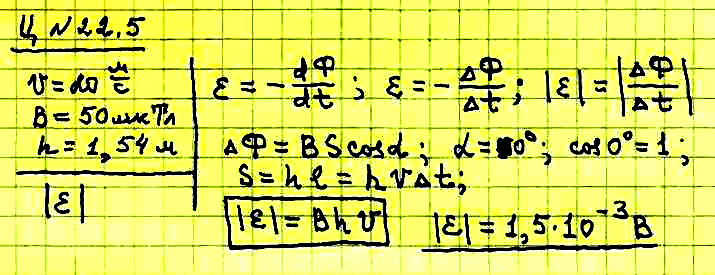 Ц №22.5
v = 20 м/с
B = 50 мкТл
h = 1,54 м
|ε|
ε = - dΦ/dt ; ε = - ΔΦ/Δt ; |ε| = |ΔΦ/Δt|
ΔΦ = BS cosα ; α = 0° ; cos 0° = 1 ;
S = hℓ = hvΔt ;
|ε| = Bhv
|ε| = 1,5·10⁻³ В